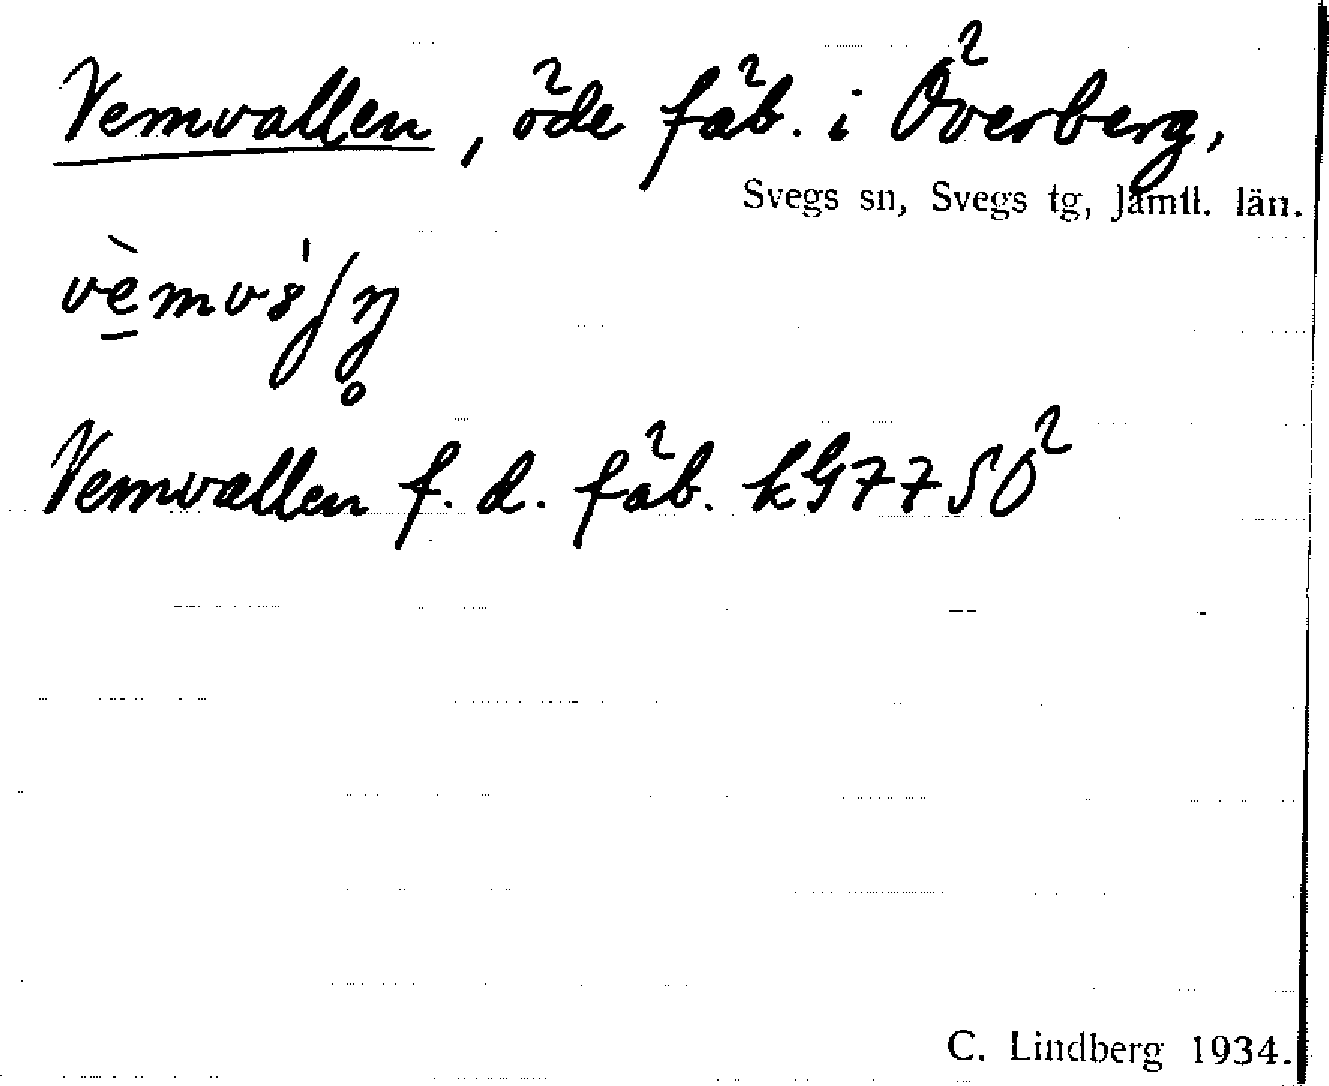 Vemvallen, öde fäb. i Överberg,
Svegs sn, Svegs tg, Jämtl. län.
Vemvallen f. d. fäb. kG 77 SÖ
C. Lindberg 1934.